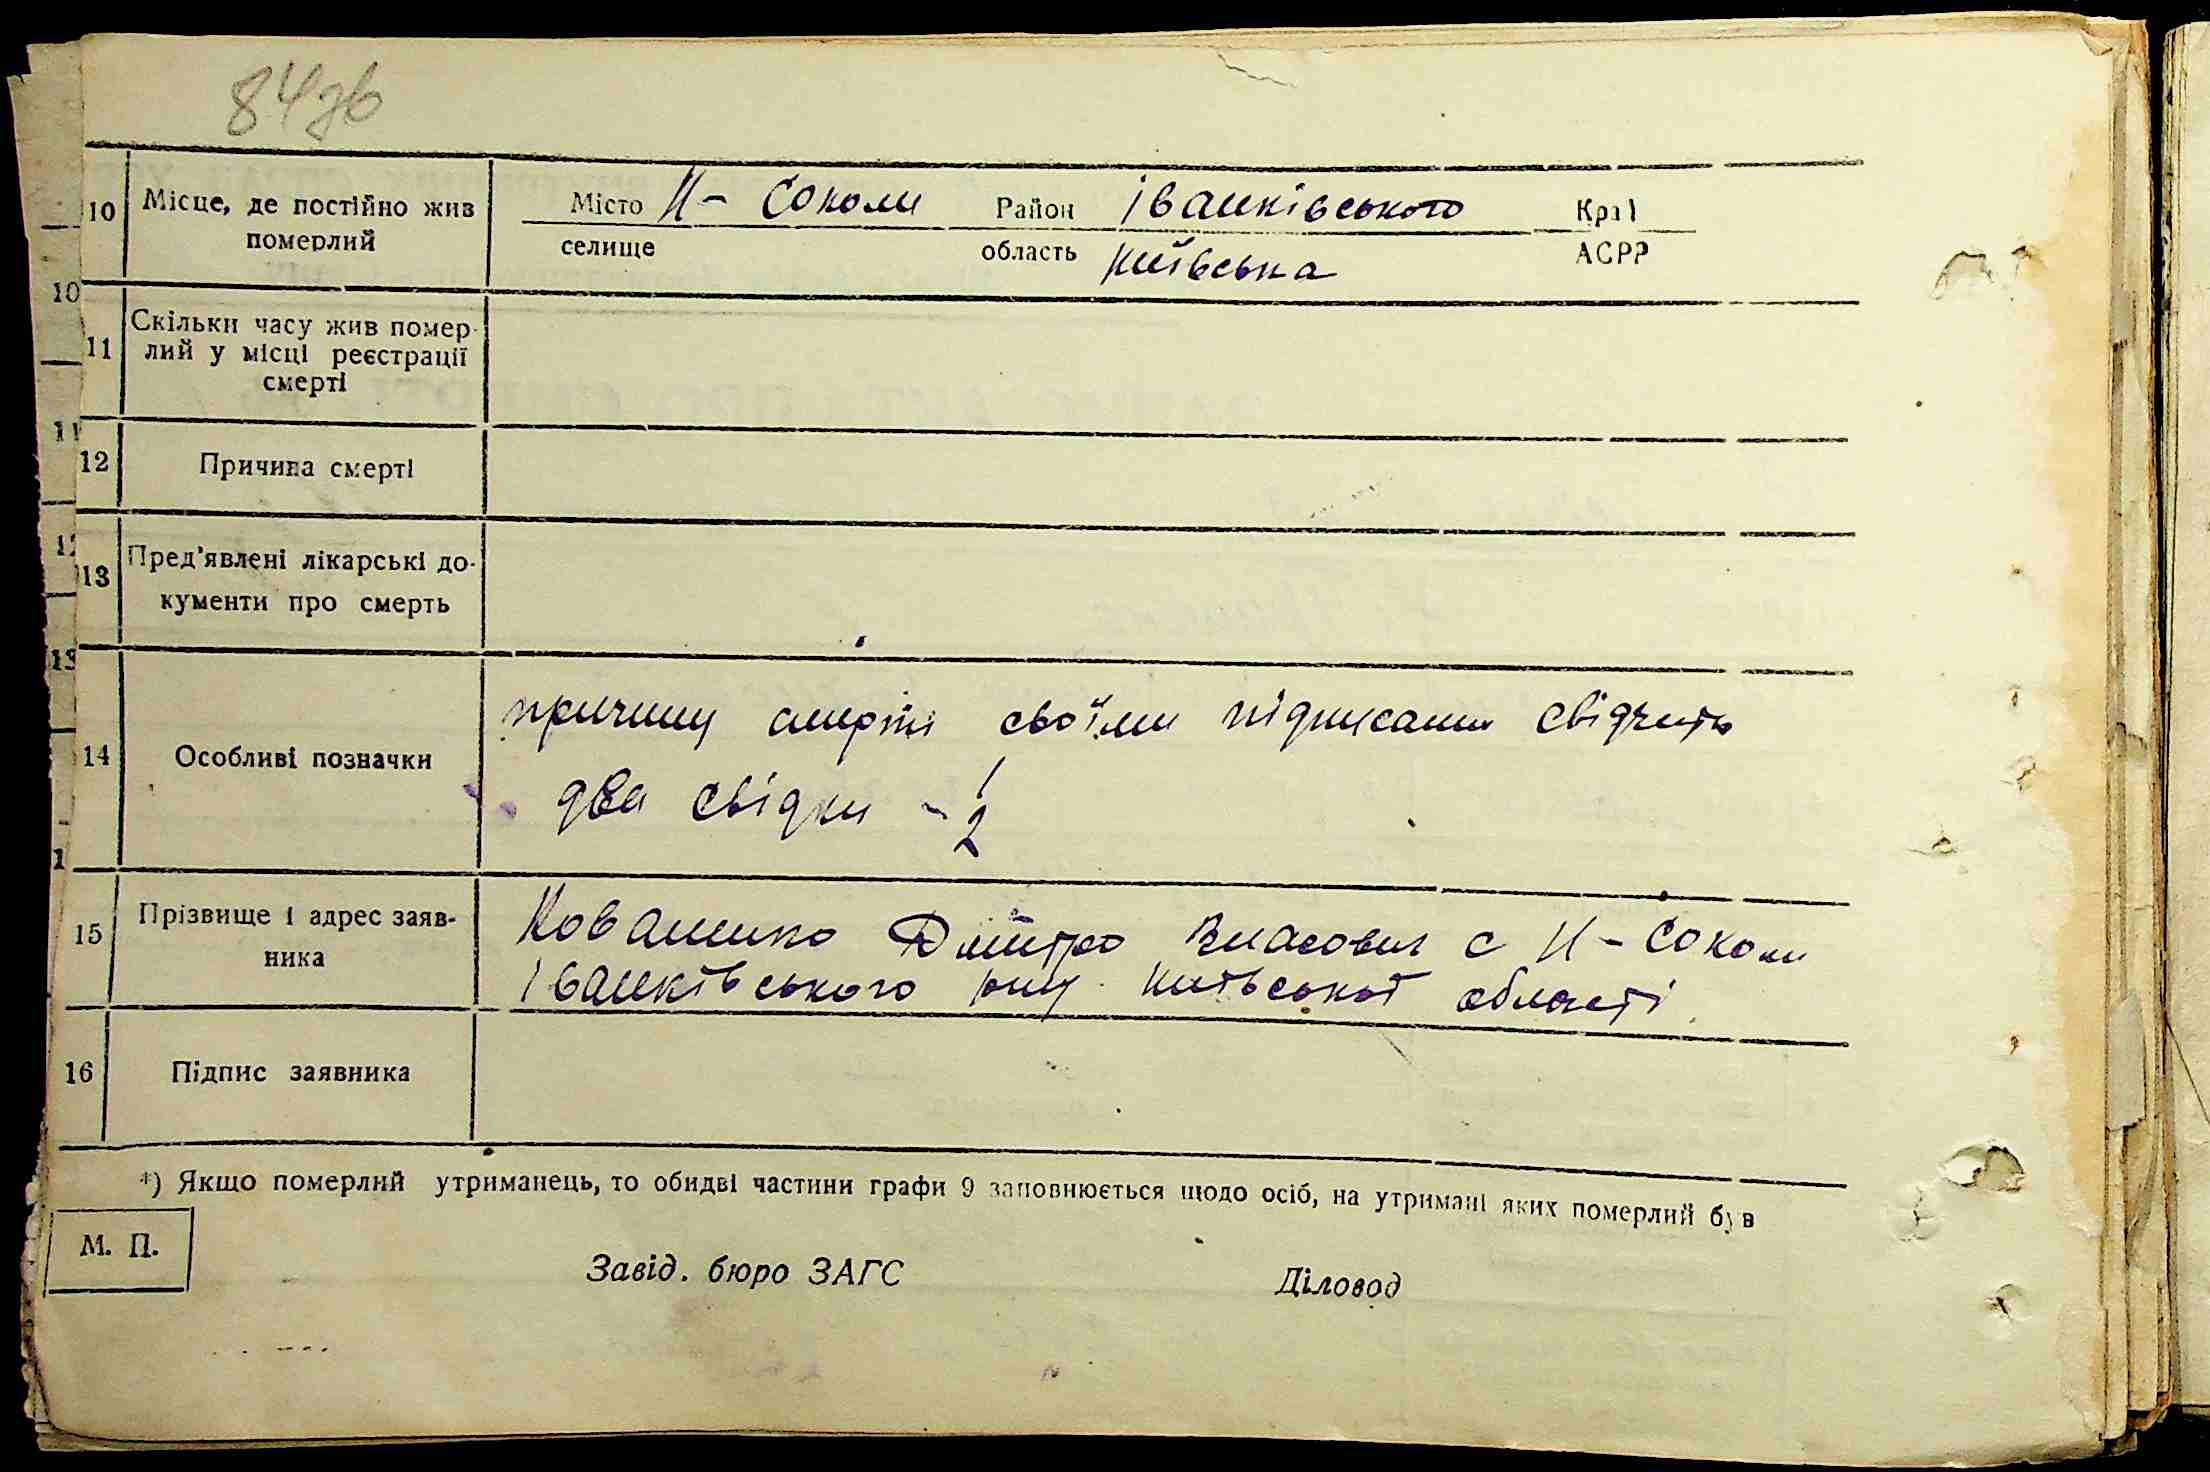 84зв
10 Місце, де постійно жив Місто Н - Соколи Район Іванківського Край
померлий селище область Київська АСРР
10
11 Скільки часу жив помер-
лий у місці реєстрації
смерті
11
12 Причина смерті
12
13 Пред'явлені лікарські до-
кументи про смерть
13
причину смерті своїми підписами свідчить
14 Особливі позначки
два свідки - 1
2
1
15 Прізвище і адрес заяв- Коваленко Дмитро Власович с Н - Соколи
ника Іванківського р-ну Київської області.
16 Підпис заявника
*) Якщо померлий утриманець, то обидві частини графи 9 заповнюється щодо осіб, на утримані яких померлий був
М. П.
Завід. бюро ЗАГС Діловод